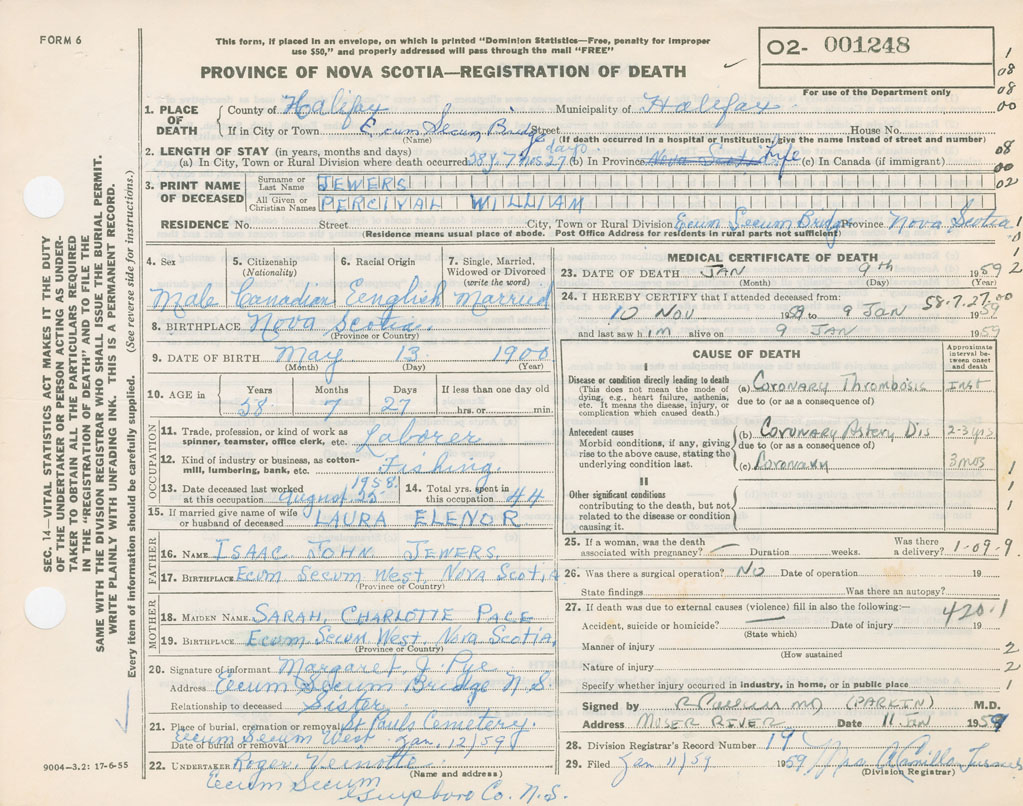 FORM 6
This form, if placed in an envelope, on which is printed "Dominion Statistics—Free, penalty for improper
use $50," and properly addressed will pass through the mail "FREE"
PROVINCE OF NOVA SCOTIA—REGISTRATION OF DEATH
O2- 001248
For use of the Department only
1
08
08
00
08
00
02
1. PLACE OF DEATH
County of Halifax Municipality of Halifax
If in City or Town Ecum Secum Bridge Street House No.
(Name) (If death occurred in a hospital or institution, give the name instead of street and number)
2. LENGTH OF STAY (in years, months and days)
(a) In City, Town or Rural Division where death occurred 38y. 7 mos 27 days (b) In Province Nova Scotia Life (c) In Canada (if immigrant)
3. PRINT NAME OF DECEASED
Surname or Last Name JEWERS
All Given or Christian Names PERCIVAL WILLIAM
RESIDENCE No. Street City, Town or Rural Division Ecum Secum Bridge Province Nova Scotia
(Residence means usual place of abode. Post Office Address for residents in rural parts not sufficient)
SEC. 14—VITAL STATISTICS ACT MAKES IT THE DUTY
OF THE UNDERTAKER OR PERSON ACTING AS UNDER-
TAKER TO OBTAIN ALL THE PARTICULARS REQUIRED
IN THE "REGISTRATION OF DEATH" AND TO FILE THE
SAME WITH THE DIVISION REGISTRAR WHO SHALL ISSUE THE BURIAL PERMIT.
WRITE PLAINLY WITH UNFADING INK. THIS IS A PERMANENT RECORD.
Every item of information should be carefully supplied. (See reverse side for instructions.)
4. Sex 5. Citizenship (Nationality) 6. Racial Origin 7. Single, Married, Widowed or Divorced (write the word)
Male Canadian Eenglish Married
8. BIRTHPLACE Nova Scotia.
(Province or Country)
9. DATE OF BIRTH May 13 1900
(Month) (Day) (Year)
10. AGE in Years Months Days If less than one day old
58 7 27 hrs. or min.
OCCUPATION
11. Trade, profession, or kind of work as spinner, teamster, office clerk, etc. Laborer
12. Kind of industry or business, as cotton-mill, lumbering, bank, etc. Fishing.
13. Date deceased last worked at this occupation August 25 1958. 14. Total yrs. spent in this occupation 44
15. If married give name of wife or husband of deceased LAURA ELENOR
FATHER
16. NAME ISAAC JOHN JEWERS.
17. BIRTHPLACE ECUM SECUM WEST NOVA SCOTIA
(Province or Country)
MOTHER
18. MAIDEN NAME SARAH, CHARLOTTE PACE
19. BIRTHPLACE ECUM SECUM WEST. NOVA SCOTIA,
(Province or Country)
20. Signature of informant Margaret J. Pye
Address Eecum Secum Bridge N.S.
Relationship to deceased Sister
21. Place of burial, cremation or removal St Pauls Cemetery.
Eecum Secum West.
Date of burial or removal Jan. 12/59
22. UNDERTAKER Roger Veinotte
(Name and address)
Eecum Secum
Guysboro Co. N.S.
9004—3.2: 17-6-55
MEDICAL CERTIFICATE OF DEATH
23. DATE OF DEATH JAN 9th 1959
(Month) (Day) (Year)
2
24. I HEREBY CERTIFY that I attended deceased from: 58.7.27.00
10 NOV 1959 to 9 JAN 1959
and last saw him alive on 9 JAN 1959
CAUSE OF DEATH
Approximate interval between onset and death
I
Disease or condition directly leading to death
(This does not mean the mode of dying, e.g., heart failure, asthenia, etc. It means the disease, injury, or complication which caused death.)
(a) CORONARY THROMBOSIS INST
due to (or as a consequence of)
Antecedent causes
Morbid conditions, if any, giving rise to the above cause, stating the underlying condition last.
(b) CORONARY ARTERY DIS 2-3 yrs
due to (or as a consequence of)
(c) CORONARY 3 mos
II
Other significant conditions
contributing to the death, but not related to the disease or condition causing it.
1
1
1
25. If a woman, was the death associated with pregnancy? — Duration weeks. Was there a delivery? 1-09-9
26. Was there a surgical operation? NO Date of operation 19
State findings Was there an autopsy?
27. If death was due to external causes (violence) fill in also the following:— 420.1
Accident, suicide or homicide? — Date of injury 19 1
(State which)
Manner of injury 2
(How sustained)
Nature of injury 2
Specify whether injury occurred in industry, in home, or in public place 1
Signed by MD (PARKIN) M.D.
Address MUSER RIVER Date 11 JAN 1959
28. Division Registrar's Record Number 19
29. Filed Jan 11/59 1959 Mrs Camilla Turner
(Division Registrar)